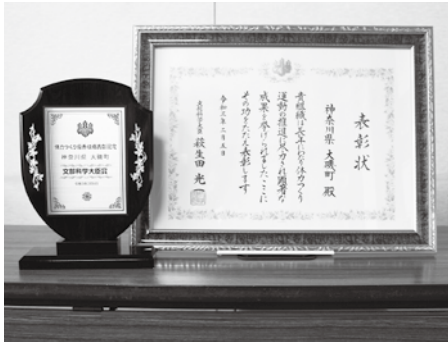 体力つくり優秀組織表彰受賞
神奈川県 大磯町
文部科学大臣賞
表彰状
神奈川県 大磯町 殿
貴組織は長年にわたり体力つくり
運動の推進に尽力され顕著な
成果を挙げられました ここに
その功をたたえ表彰します
令和三年二月五日
文部科学大臣 萩生田 光一